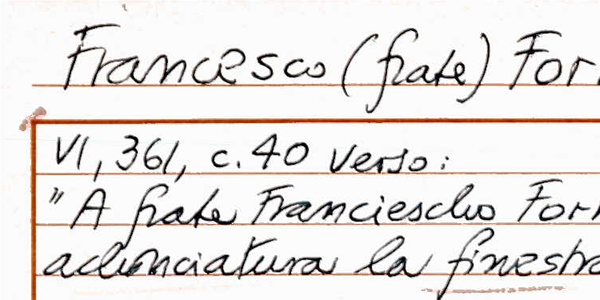 Francesco (frate) For
VI, 361, c. 40 verso:
"A frate Franciescho For
achonciatura la finestra